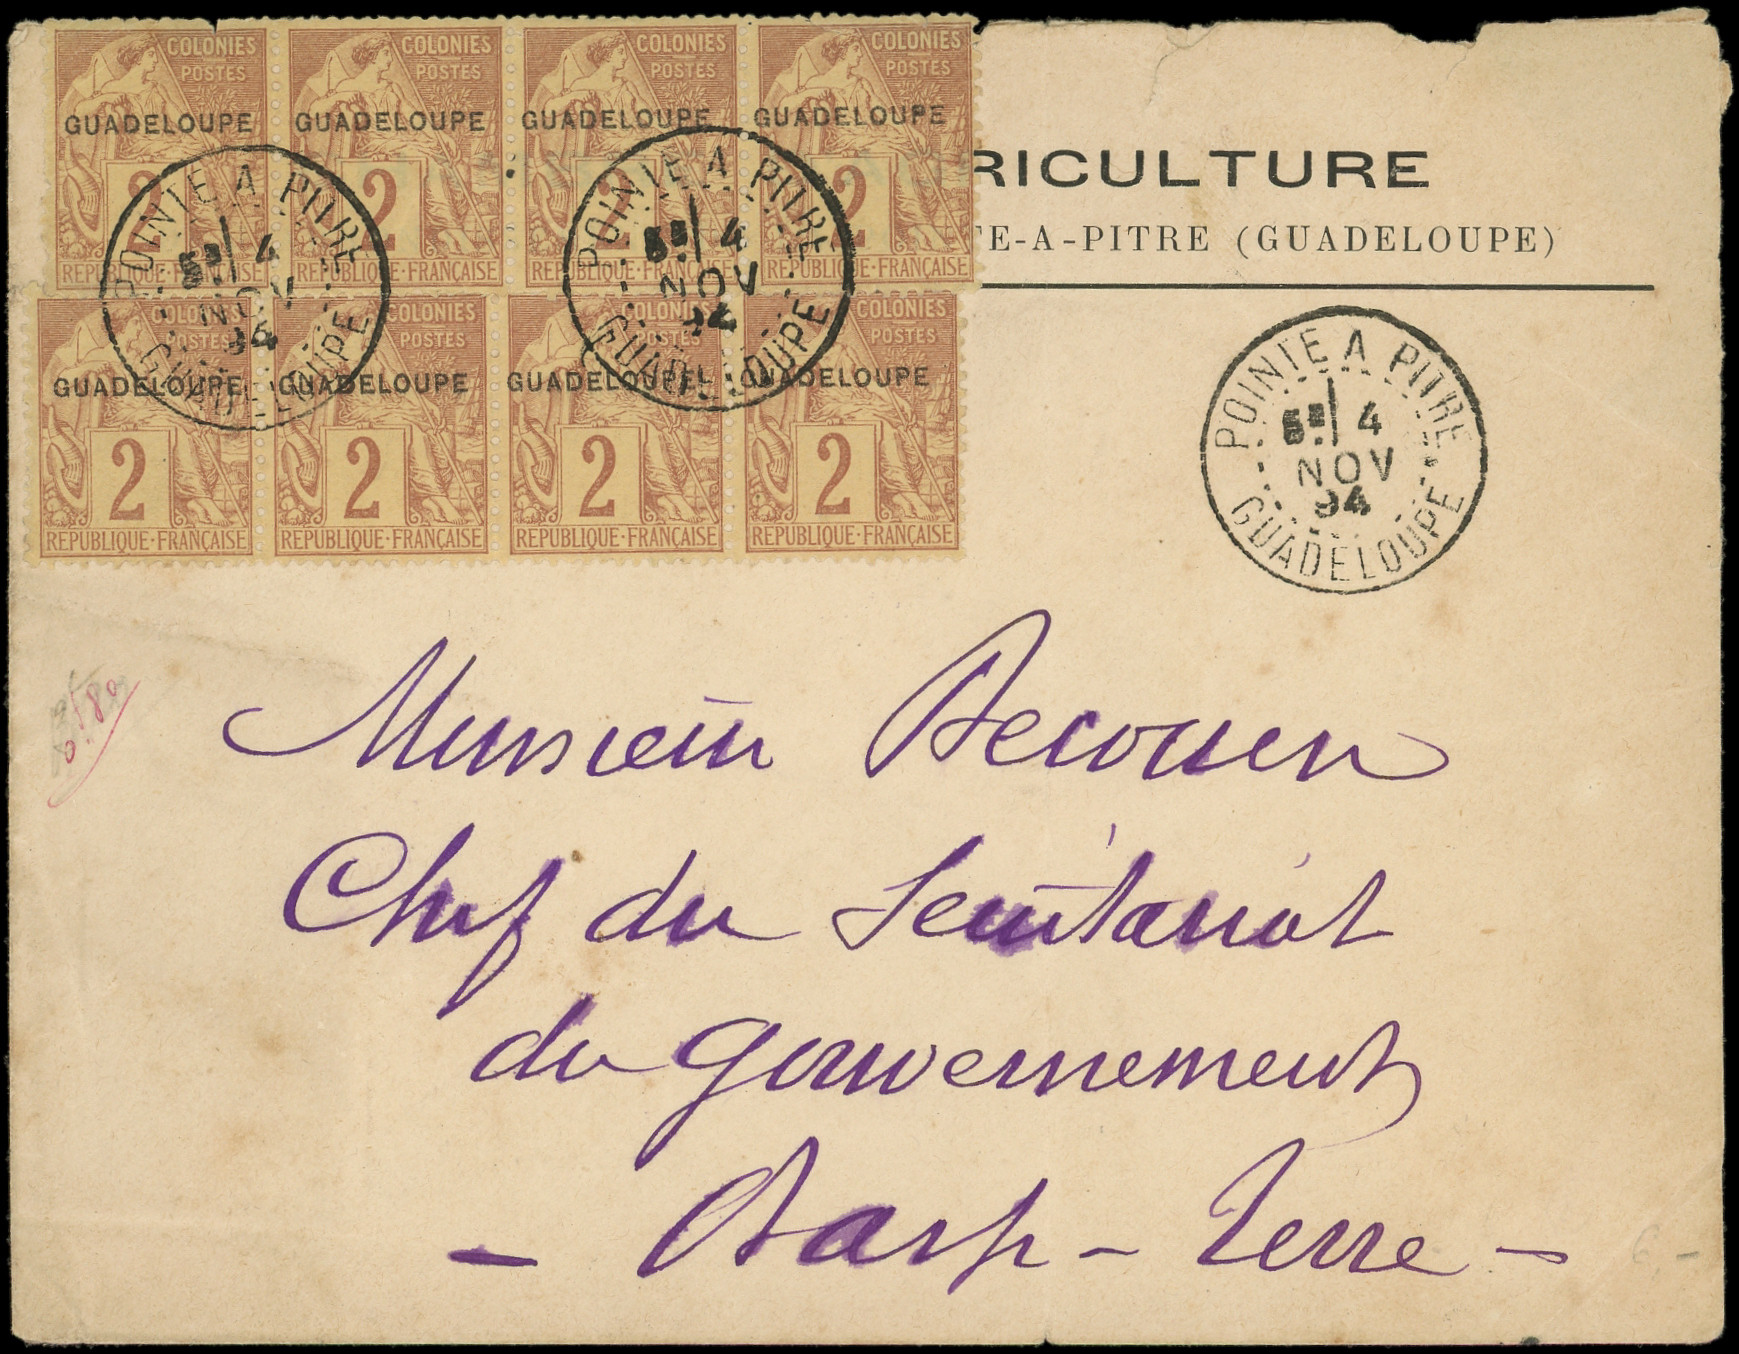 COLONIES COLONIES COLONIES COLONIES
POSTES POSTES POSTES POSTES
GUADELOUPE GUADELOUPE GUADELOUPE GUADELOUPE
2 2 2 2
REPUBLIQUE·FRANÇAISE REPUBLIQUE·FRANÇAISE REPUBLIQUE·FRANÇAISE REPUBLIQUE·FRANÇAISE
COLONIES COLONIES COLONIES COLONIES
POSTES POSTES POSTES POSTES
GUADELOUPE GUADELOUPE GUADELOUPE GUADELOUPE
2 2 2 2
REPUBLIQUE·FRANÇAISE REPUBLIQUE·FRANÇAISE REPUBLIQUE·FRANÇAISE REPUBLIQUE·FRANÇAISE
POINTE A PITRE
4
NOV
94
GUADELOUPE
POINTE A PITRE
4
NOV
94
GUADELOUPE
RICULTURE
TE-A-PITRE (GUADELOUPE)
POINTE A PITRE
4
NOV
94
GUADELOUPE
Monsieur
Chef du Secrétariat
du gouvernement
- Basse - Terre -